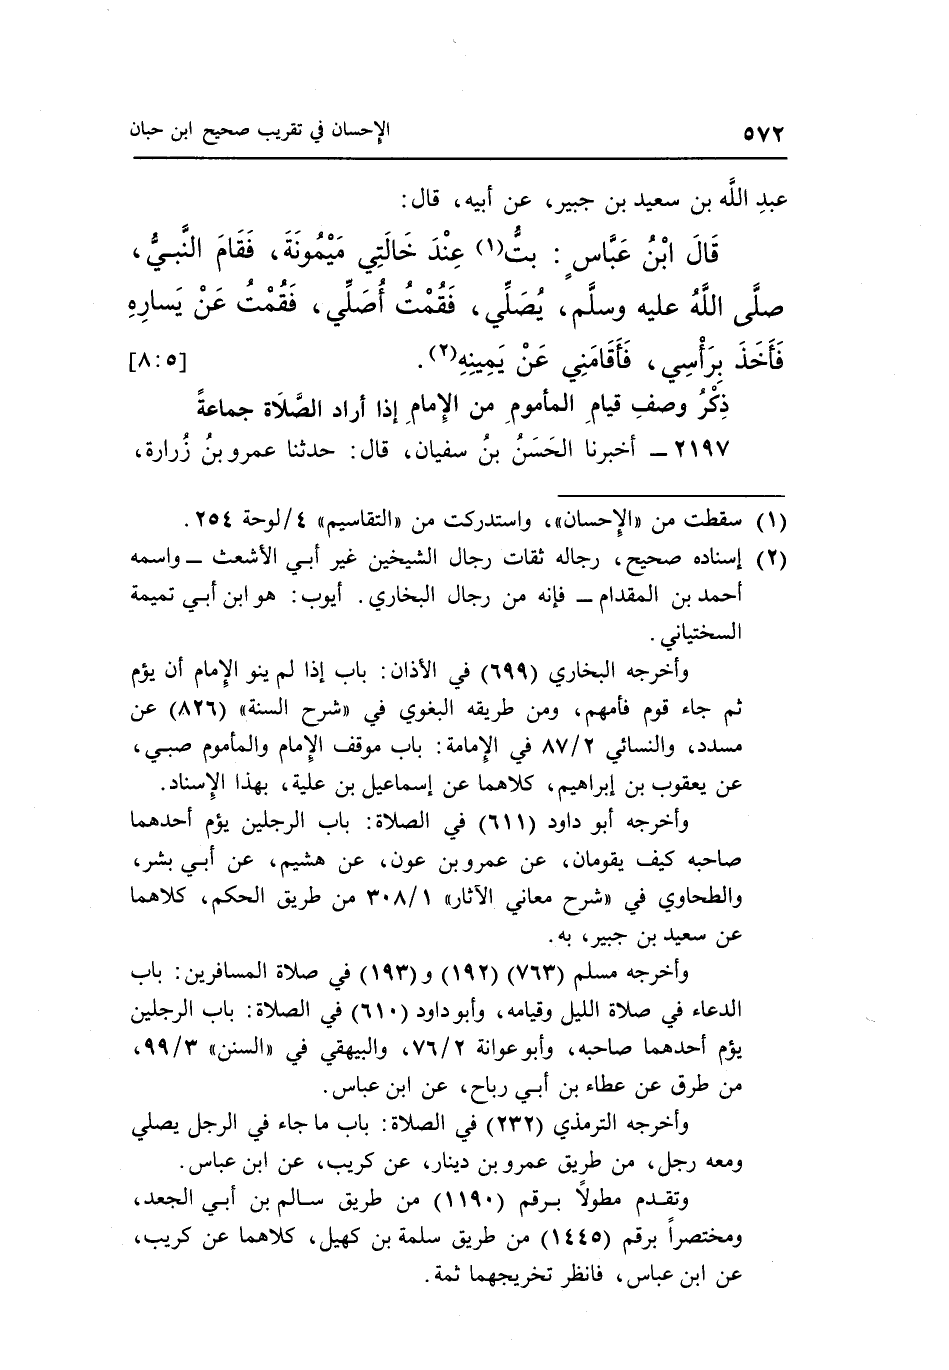 ٥٧٢ الإحسان في تقريب صحيح ابن حبان
عبدِ اللَّه بن سعيد بن جبير، عن أبيه، قال:
قَالَ ابْنُ عَبَّاسٍ: بتُّ(١) عِنْدَ خَالَتِي مَيْمُونَةَ، فَقَامَ النَّبيُّ،
صلَّى اللَّهُ عليه وسلَّم، يُصَلِّي، فَقُمْتُ أُصَلِّي، فَقُمْتُ عَنْ يَسارِهِ
فَأَخَذَ بِرَأْسِي، فَأَقَامَنِي عَنْ يَمِينِهِ(٢). [٨:٥]
ذِكْرُ وصفِ قيامِ المأمومِ من الإِمامِ إذا أراد الصَّلَاة جماعةً
٢١٩٧ ــ أخبرنا الحَسَنُ بنُ سفيان، قال: حدثنا عمرو بنُ زُرارة،
(١) سقطت من «الإِحسان»، واستدركت من «التقاسيم» ٤/لوحة ٢٥٤.
(٢) إسناده صحيح، رجاله ثقات رجال الشيخين غير أبي الأشعث ــ واسمه
أحمد بن المقدام ــ فإنه من رجال البخاري. أيوب: هو ابن أبي تميمة
السختياني.
وأخرجه البخاري (٦٩٩) في الأذان: باب إذا لم ينو الإِمام أن يؤم
ثم جاء قوم فأمهم، ومن طريقه البغوي في «شرح السنة» (٨٢٦) عن
مسدد، والنسائي ٨٧/٢ في الإِمامة: باب موقف الإِمام والمأموم صبي،
عن يعقوب بن إبراهيم، كلاهما عن إسماعيل بن علية، بهذا الإِسناد.
وأخرجه أبو داود (٦١١) في الصلاة: باب الرجلين يؤم أحدهما
صاحبه كيف يقومان، عن عمرو بن عون، عن هشيم، عن أبي بشر،
والطحاوي في «شرح معاني الآثار» ٣٠٨/١ من طريق الحكم، كلاهما
عن سعيد بن جبير، به.
وأخرجه مسلم (٧٦٣) (١٩٢) و(١٩٣) في صلاة المسافرين: باب
الدعاء في صلاة الليل وقيامه، وأبو داود (٦١٠) في الصلاة: باب الرجلين
يؤم أحدهما صاحبه، وأبو عوانة ٧٦/٢، والبيهقي في «السنن» ٩٩/٣،
من طرق عن عطاء بن أبي رباح، عن ابن عباس.
وأخرجه الترمذي (٢٣٢) في الصلاة: باب ما جاء في الرجل يصلي
ومعه رجل، من طريق عمرو بن دينار، عن كريب، عن ابن عباس.
وتقدم مطولاً برقم (١١٩٠) من طريق سالم بن أبي الجعد،
ومختصراً برقم (١٤٤٥) من طريق سلمة بن كهيل، كلاهما عن كريب،
عن ابن عباس، فانظر تخريجهما ثمة.